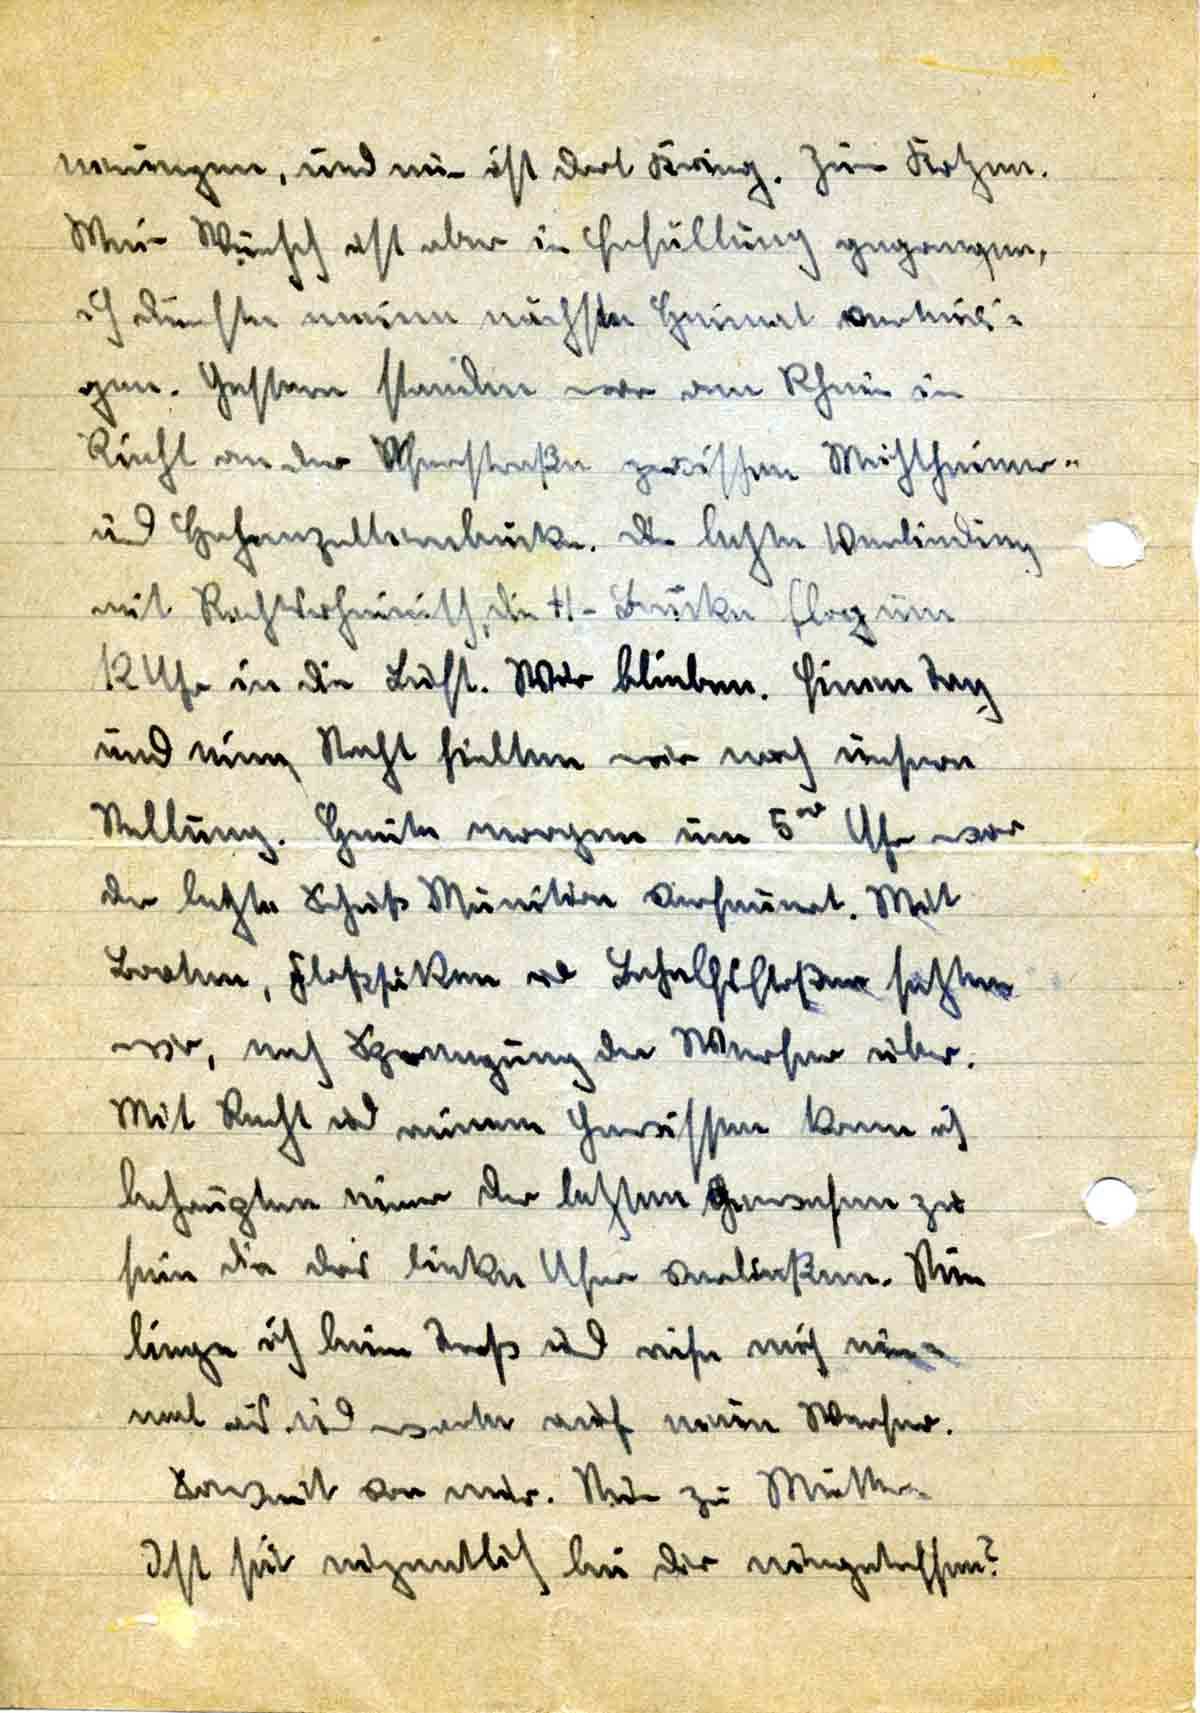 und nun ist dort Krieg. Zum Kotzen.
Mein Wunsch ist aber in Erfüllung gegangen,
ich durfte meine nächste Heimat verteidi-
gen. Gestern standen wir am Rhein in
Köln an der Uferstraße zwischen Mülheimer-
und Hohenzollernbrücke. Die letzte Verbindung
mit Rechtsrheinisch, die H-Brücke flog um
12 Uhr in die Luft. Wir blieben. Einen Tag
und eine Nacht hielten wir noch unsere
Stellung. Heute morgen um 5°° Uhr war
der letzte Schuß Munition verfeuert. Mit
Booten, Floßsäcken u Behelfsfloßen setzten
wir, nach Sprengung der Werfer über.
Mit Recht und reinem Gewissen kann ich
behaupten einer der letzten gewesen zu
sein die das linke Ufer verließen. Nun
liege ich beim Troß und ruhe mich ein-
mal aus und warte auf neue Werfer.
Soweit von mir. Nun zu Mutter.
Ist sie eigentlich bei dir eingetroffen?